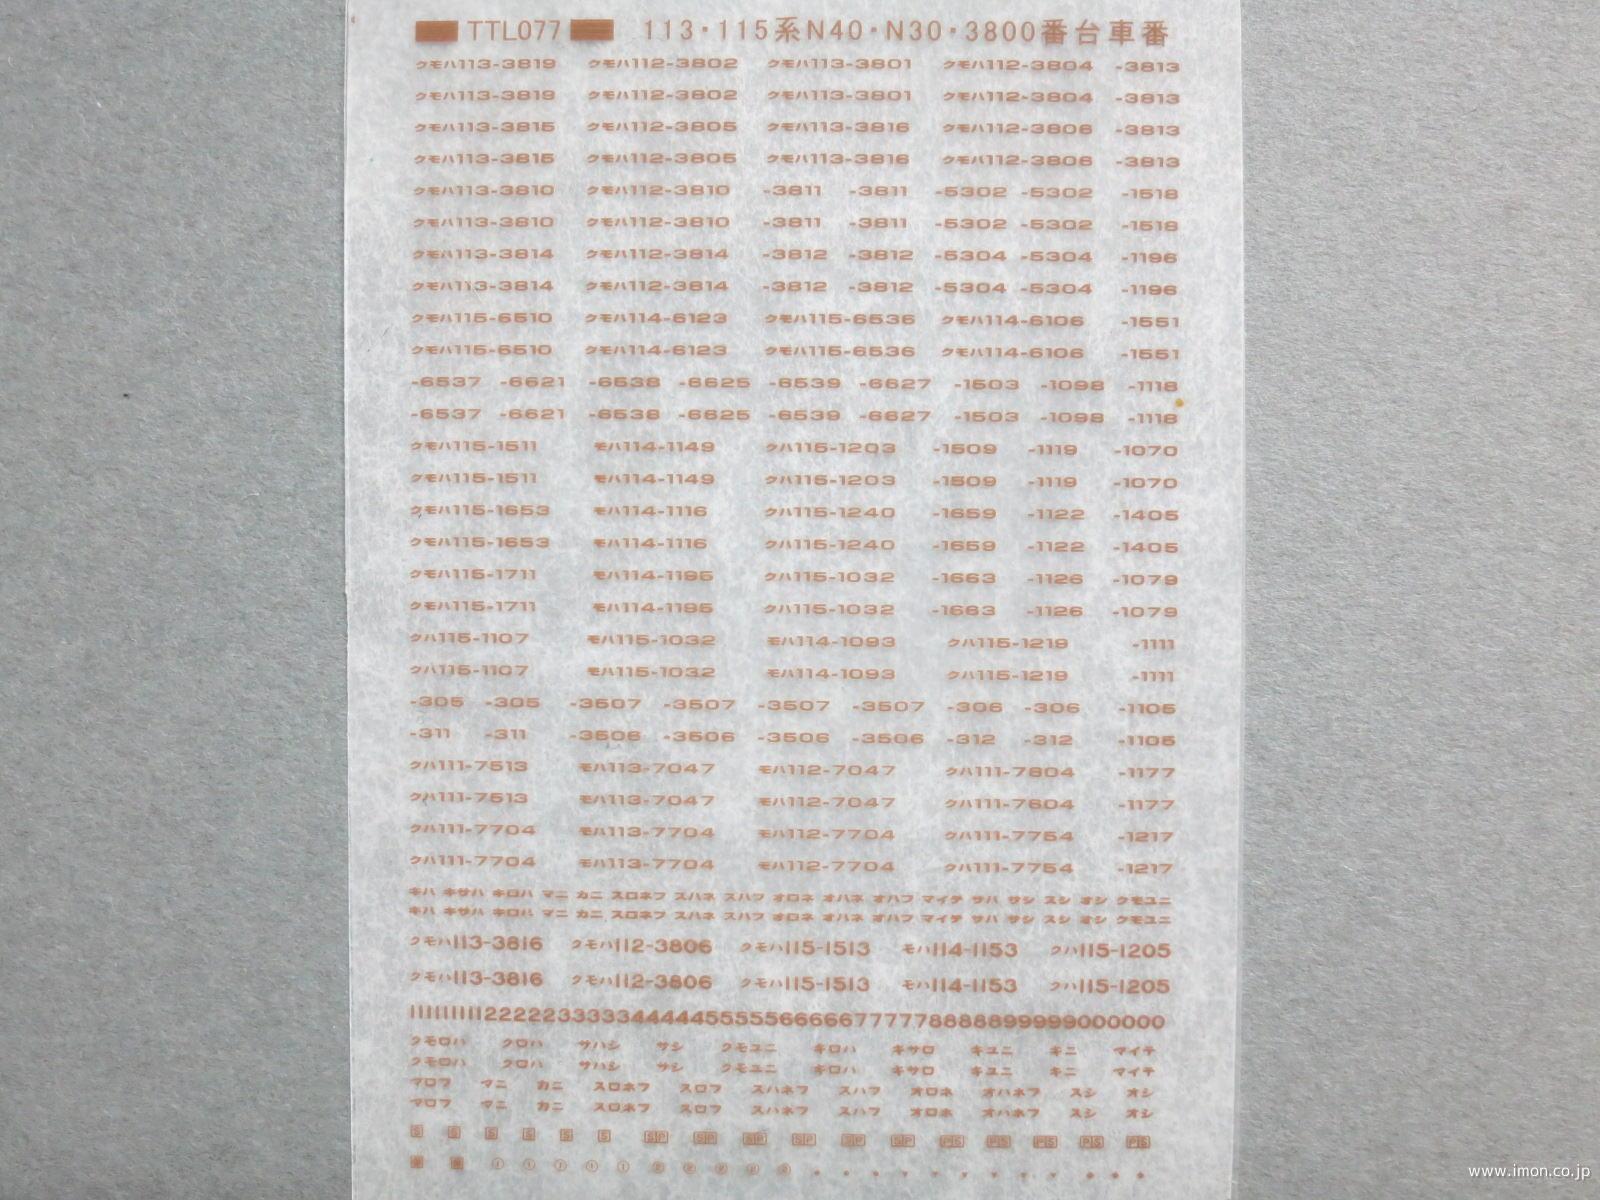 TTL077 113・115系N40・N30・3800番台車番
クモハ113-3819 クモハ112-3802 クモハ113-3801 クモハ112-3804 -3813
クモハ113-3819 クモハ112-3802 クモハ113-3801 クモハ112-3804 -3813
クモハ113-3815 クモハ112-3805 クモハ113-3816 クモハ112-3806 -3813
クモハ113-3815 クモハ112-3805 クモハ113-3816 クモハ112-3806 -3813
クモハ113-3810 クモハ112-3810 -3811 -3811 -5302 -5302 -1518
クモハ113-3810 クモハ112-3810 -3811 -3811 -5302 -5302 -1518
クモハ113-3814 クモハ112-3814 -3812 -3812 -5304 -5304 -1196
クモハ113-3814 クモハ112-3814 -3812 -3812 -5304 -5304 -1196
クモハ115-6510 クモハ114-6123 クモハ115-6536 クモハ114-6106 -1551
クモハ115-6510 クモハ114-6123 クモハ115-6536 クモハ114-6106 -1551
-6537 -6621 -6538 -6625 -6539 -6627 -1503 -1098 -1118
-6537 -6621 -6538 -6625 -6539 -6627 -1503 -1098 -1118
クモハ115-1511 モハ114-1149 クハ115-1203 -1509 -1119 -1070
クモハ115-1511 モハ114-1149 クハ115-1203 -1509 -1119 -1070
クモハ115-1653 モハ114-1116 クハ115-1240 -1659 -1122 -1405
クモハ115-1653 モハ114-1116 クハ115-1240 -1659 -1122 -1405
クモハ115-1711 モハ114-1195 クハ115-1032 -1663 -1126 -1079
クモハ115-1711 モハ114-1195 クハ115-1032 -1663 -1126 -1079
クハ115-1107 モハ115-1032 モハ114-1093 クハ115-1219 -1111
クハ115-1107 モハ115-1032 モハ114-1093 クハ115-1219 -1111
-305 -305 -3507 -3507 -3507 -3507 -306 -306 -1105
-311 -311 -3506 -3506 -3506 -3506 -312 -312 -1105
クハ111-7513 モハ113-7047 モハ112-7047 クハ111-7604 -1177
クハ111-7513 モハ113-7047 モハ112-7047 クハ111-7604 -1177
クハ111-7704 モハ113-7704 モハ112-7704 クハ111-7754 -1217
クハ111-7704 モハ113-7704 モハ112-7704 クハ111-7754 -1217
キハ キサハ キロハ マニ カニ スロネフ スハネ スハフ オロネ オハネ オハフ マイテ サハ サシ スシ オシ クモユニ
キハ キサハ キロハ マニ カニ スロネフ スハネ スハフ オロネ オハネ オハフ マイテ サハ サシ スシ オシ クモユニ
クモハ113-3816 クモハ112-3806 クモハ115-1513 モハ114-1153 クハ115-1205
クモハ113-3816 クモハ112-3806 クモハ115-1513 モハ114-1153 クハ115-1205
11111111112222233333344444555556666677777888889999900000
クモロハ クロハ サハシ サシ クモユニ キロハ キサロ キユニ キニ マイテ
クモロハ クロハ サハシ サシ クモユニ キロハ キサロ キユニ キニ マイテ
マロフ マニ カニ スロネフ スロフ スハネフ スハフ オロネ オハネフ スシ オシ
マロフ マニ カニ スロネフ スロフ スハネフ スハフ オロネ オハネフ スシ オシ
S S S S S S SP SP SP SP SP SP PS PS PS PS PS
www.imon.co.jp